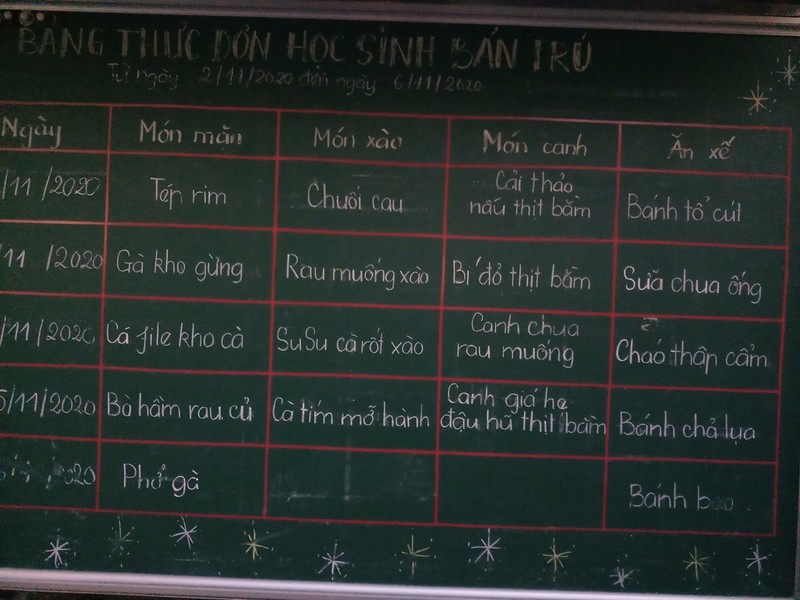 BẢNG THỰC ĐƠN HỌC SINH BÁN TRÚ
Từ ngày 2/11/2020 đến ngày 6/11/2020
Ngày Món mặn Món xào Món canh Ăn xế
/11/2020 Tép rim Chuối cau Cải thảo
nấu thịt bằm Bánh tổ cút
11/2020 Gà kho gừng Rau muống xào Bí đỏ thịt bằm Sữa chua ống
/11/2020 Cá file kho cà SuSu cà rốt xào Canh chua
rau muống Cháo thập cẩm
5/11/2020 Bò hầm rau củ Cà tím mỡ hành Canh giá hẹ
đậu hũ thịt bằm Bánh chả lụa
2020 Phở gà Bánh bao